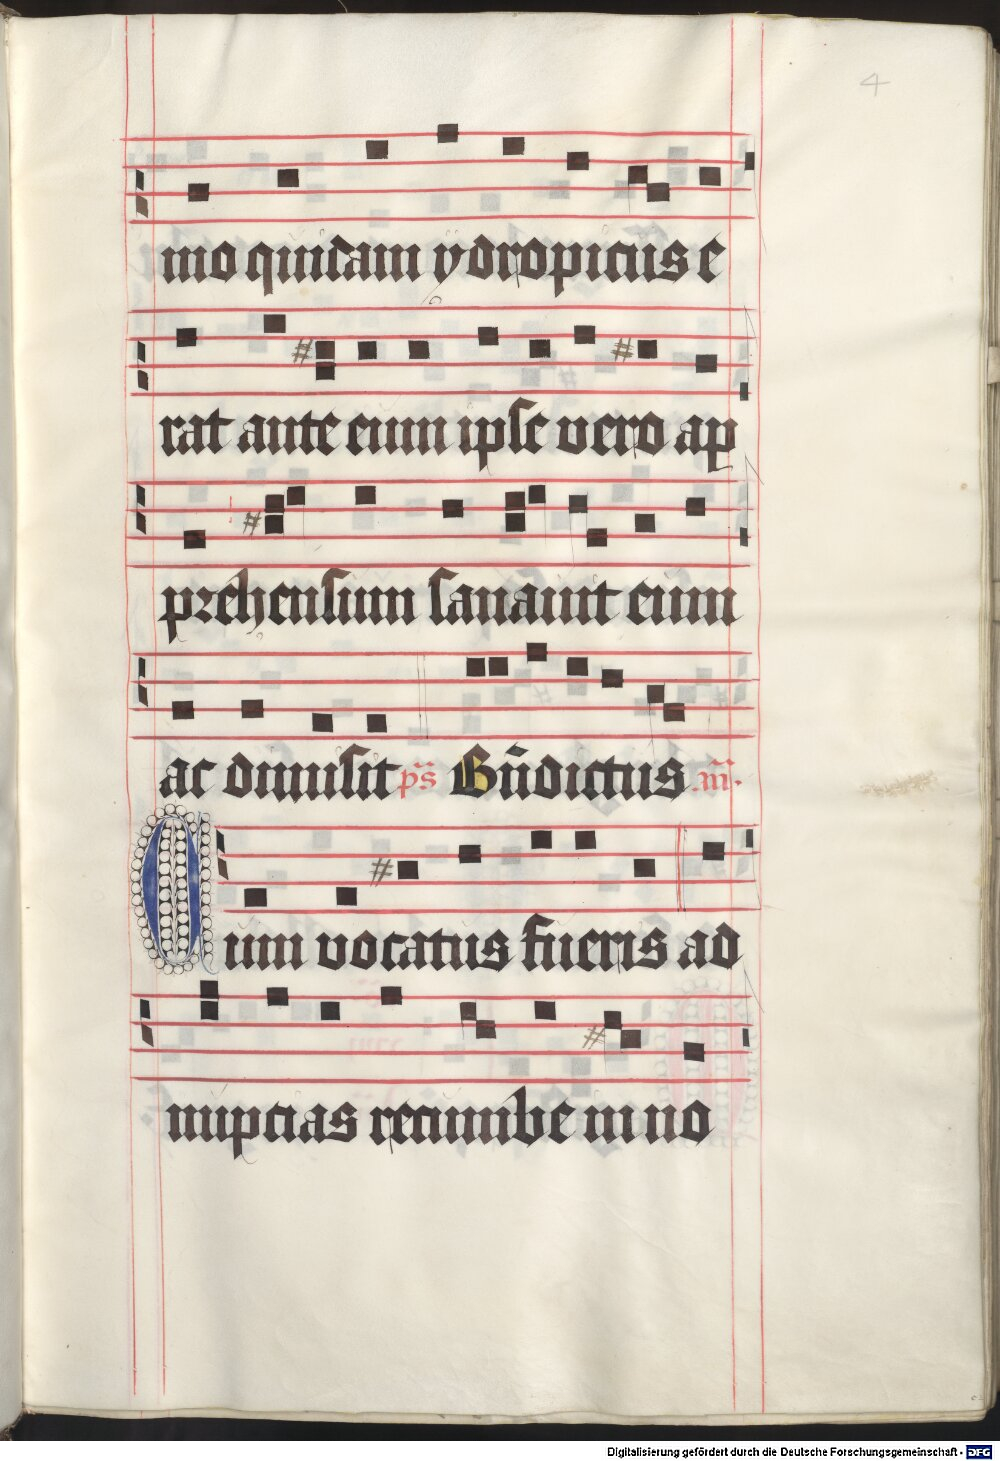 4
mo quidam ydropicus e
rat ante eum ipse vero ap
prehensum sanauit eum
ac dimisit ps Bn̄dictus .m.
Cum vocatus fueris ad
nuptias recumbe in no
Digitalisierung gefördert durch die Deutsche Forschungsgemeinschaft - DFG